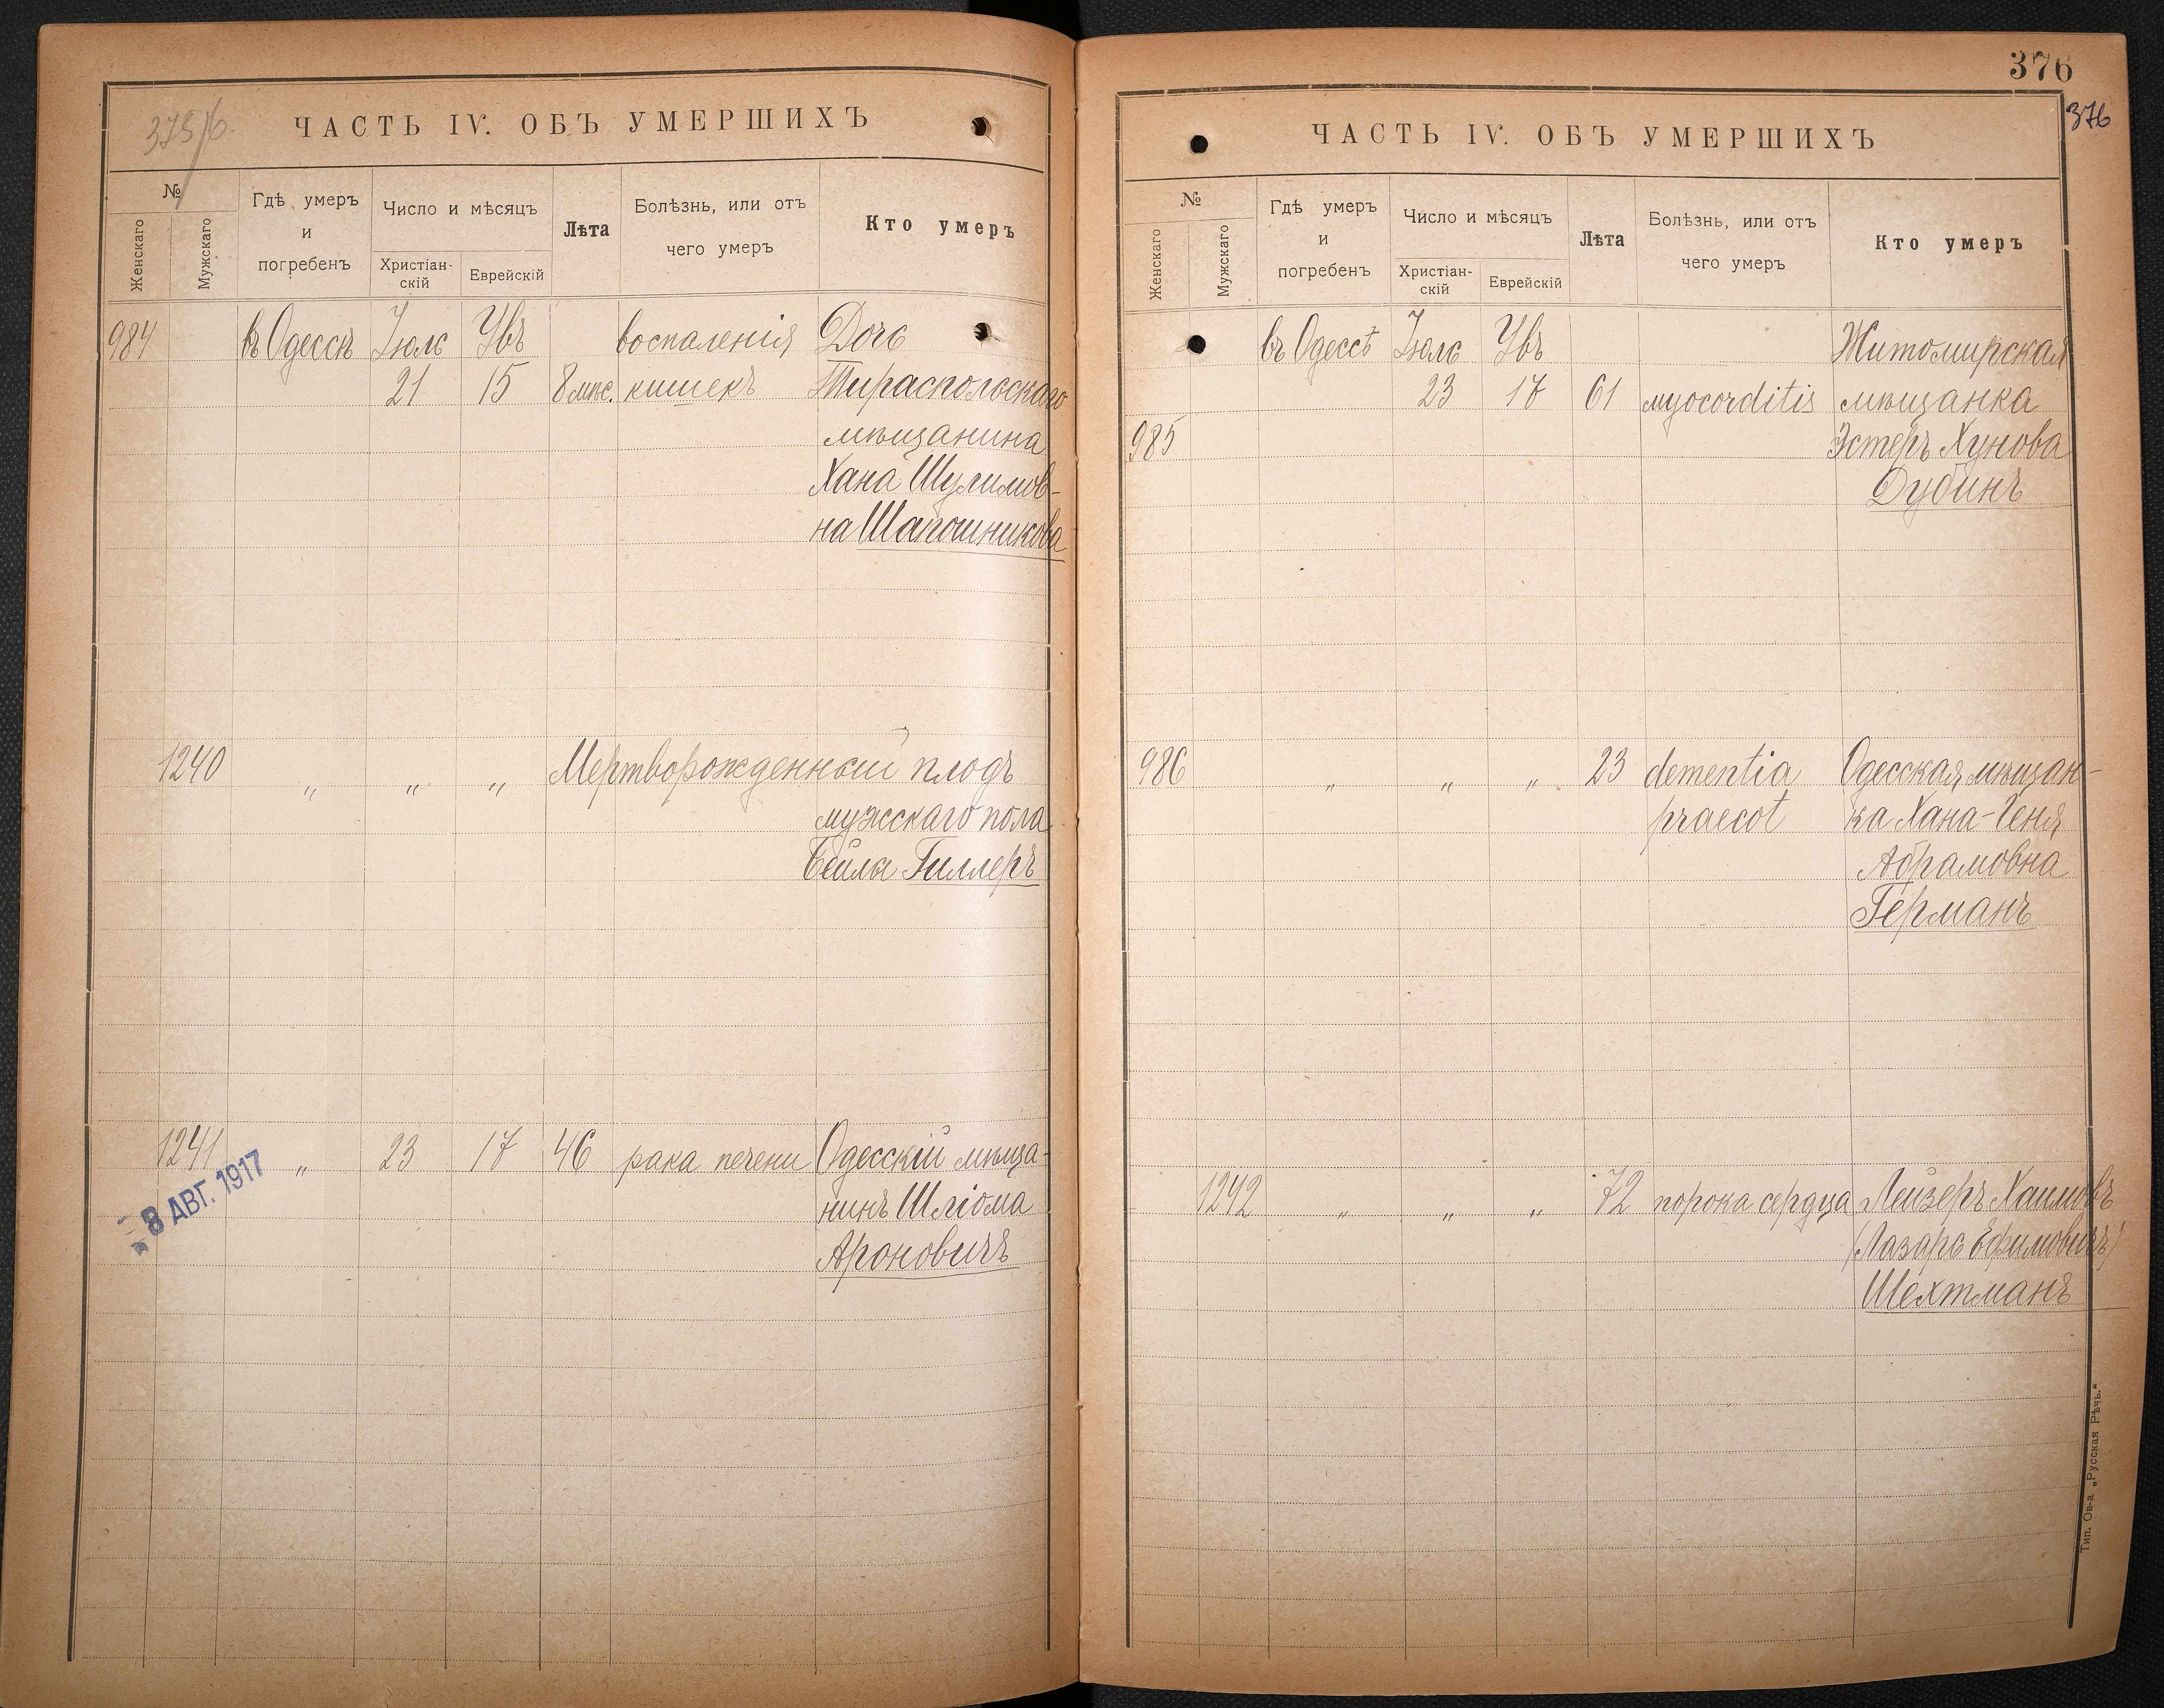 375/б.
ЧАСТЬ IV. ОБЪ УМЕРШИХЪ
№
Женскаго
Мужскаго
Гдѣ умеръ
и
погребенъ
Число и мѣсяцъ
Христіан-
скій
Еврейскій
Лѣта
Болѣзнь, или отъ
чего умеръ
Кто умеръ
984 въ Одессѣ Іюль Увъ воспаленія Дочь
21 15 8 мѣс. кишекъ Тираспольскаго
мѣщанина
Хана Шулимов-
на Шапошникова
1240 " " " Мертворожденный плодъ
мужскаго пола
Бейлы Гиллеръ
1241 " 23 17 46 рака печени Одесскій мѣща-
нинъ Шліома
Ароновичъ
8 АВГ. 1917
376
376
ЧАСТЬ IV. ОБЪ УМЕРШИХЪ
№
Женскаго
Мужскаго
Гдѣ умеръ
и
погребенъ
Число и мѣсяцъ
Христіан-
скій
Еврейскій
Лѣта
Болѣзнь, или отъ
чего умеръ
Кто умеръ
въ Одессѣ Іюль Увъ Житомирская
23 17 61 myocorditis мѣщанка
985 Эстеръ Хунова
Дубинъ
986 " " " 23 dementia Одесская мѣщан-
praecot ка Хана-Геня
Абрамовна
Германъ
1242 " " " 72 порока сердца Лейзеръ Хаимовъ
(Лазарь Ефимовичъ)
Шехтманъ
Тип. Ов-а „Русская Рѣчь."